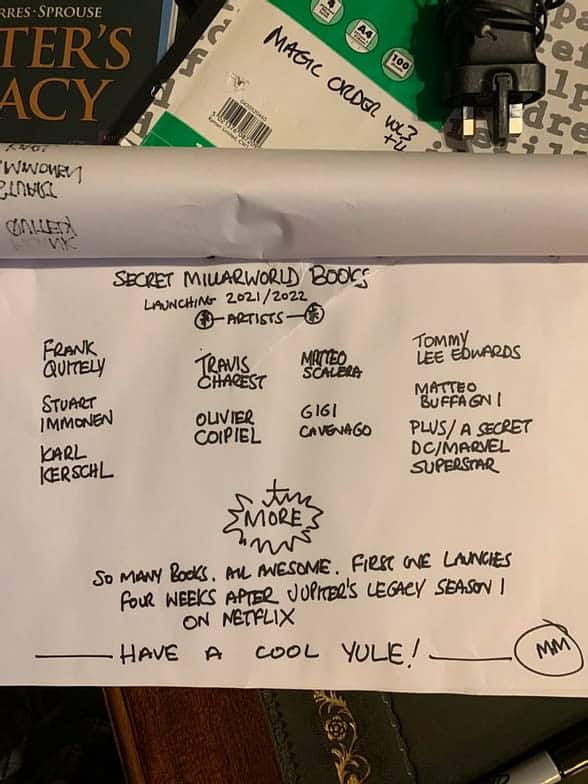 RRES · SPROUSE
TER'S
ACY
4
A4
100
MAGIC ORDER VOL 3
SECRET MILLARWORLD BOOKS
LAUNCHING 2021/2022
ARTISTS
FRANK
QUITELY
STUART
IMMONEN
KARL
KERSCHL
TRAVIS
CHAREST
OLIVIER
COIPIEL
MATTEO
SCALERA
GIGI
CAVENAGO
TOMMY
LEE EDWARDS
MATTEO
BUFFAGNI
PLUS/A SECRET
DC/MARVEL
SUPERSTAR
MORE
SO MANY BOOKS. ALL AWESOME. FIRST ONE LAUNCHES
FOUR WEEKS AFTER JUPITER'S LEGACY SEASON 1
ON NETFLIX
HAVE A COOL YULE!
MM